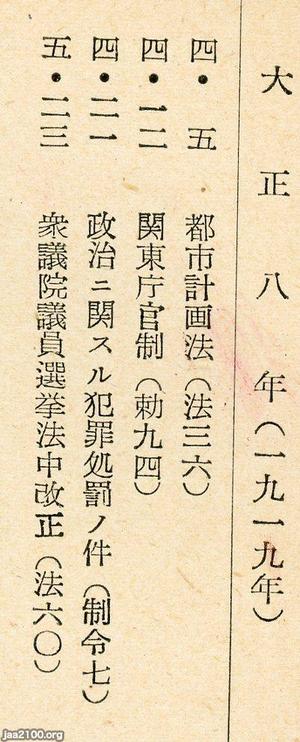 大正八年（一九一九年）
四・五　都市計画法（法三六）
四・一二　関東庁官制（勅九四）
四・二一　政治ニ関スル犯罪処罰ノ件（制令七）
五・二三　衆議院議員選挙法中改正（法六〇）
jaa2100.org